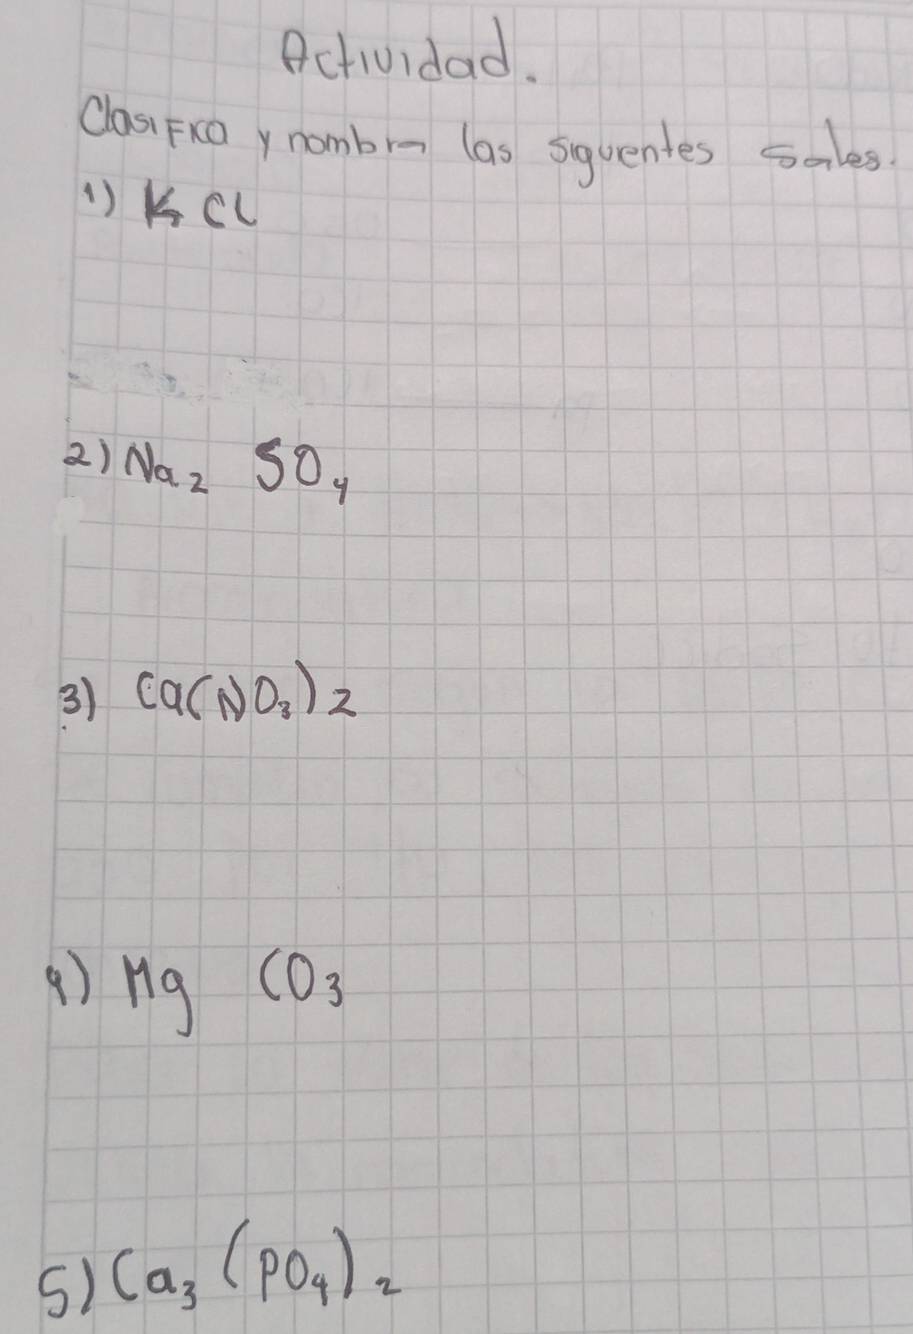 Actividad.
Clasifica y nombra las siguientes sales.
1) KCl
2) Na₂ SO₄
3) Ca(NO₃)2
4) Mg CO₃
5) Ca₃ (PO₄)₂